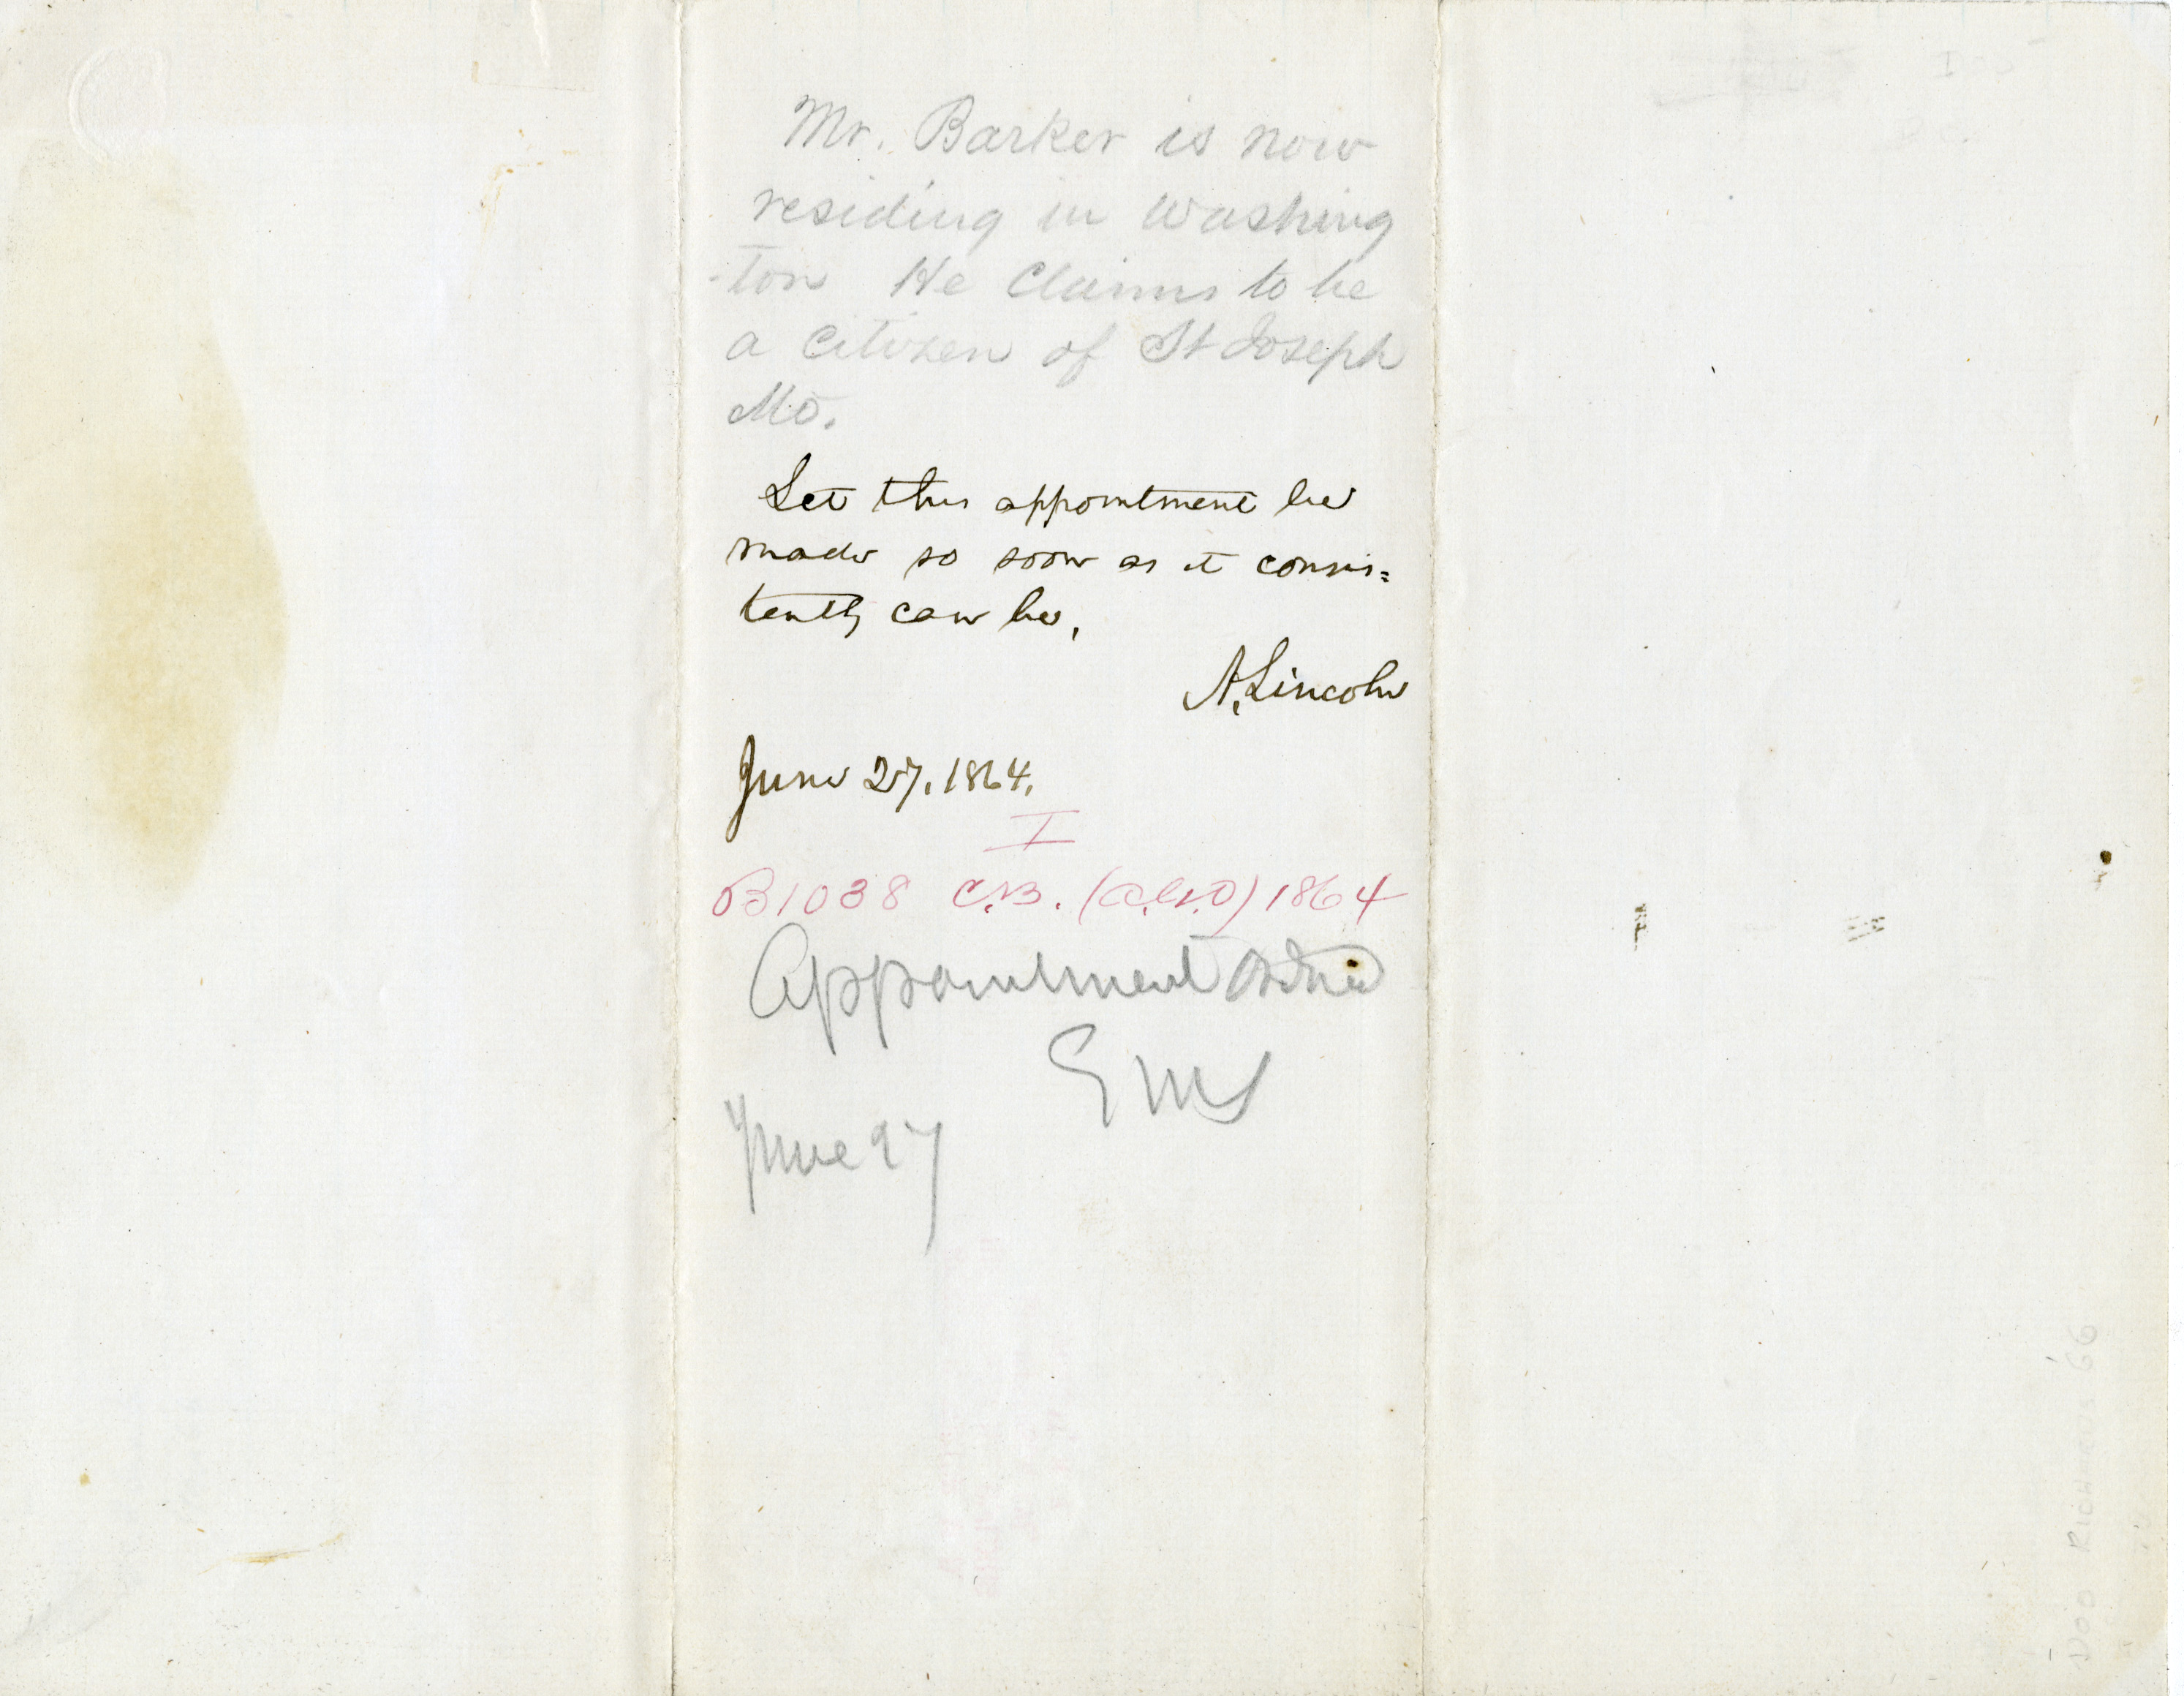 Mr. Barker is now
residing in Washing
-ton He Claims to be
a Citizen of St Joseph
Mo.
Let this appointment be
made so soon as it consis=
tently can be.
A. Lincoln
June 27. 1864.
I
B1038 C.B. (A.G.O) 1864
Appointment ordered
EMS
June 27